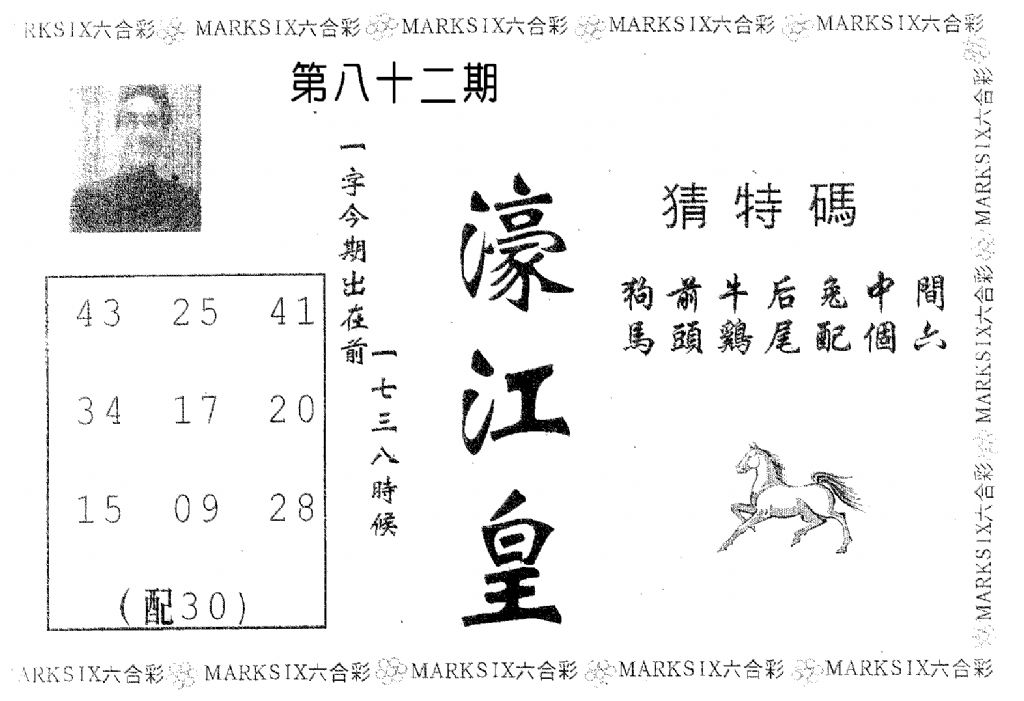 RKSIX六合彩 MARKSIX六合彩 MARKSIX六合彩 MARKSIX六合彩 MARKSIX六合彩
第八十二期
猜特碼
狗前牛后兔中間
馬頭鷄尾配個六
濠江皇
一字今期出在前
一七三八時候
43 25 41
34 17 20
15 09 28
(配30)
MARKSIX六合彩 MARKSIX六合彩 MARKSIX六合彩
ARKSIX六合彩 MARKSIX六合彩 MARKSIX六合彩 MARKSIX六合彩 MARKSIX六合彩